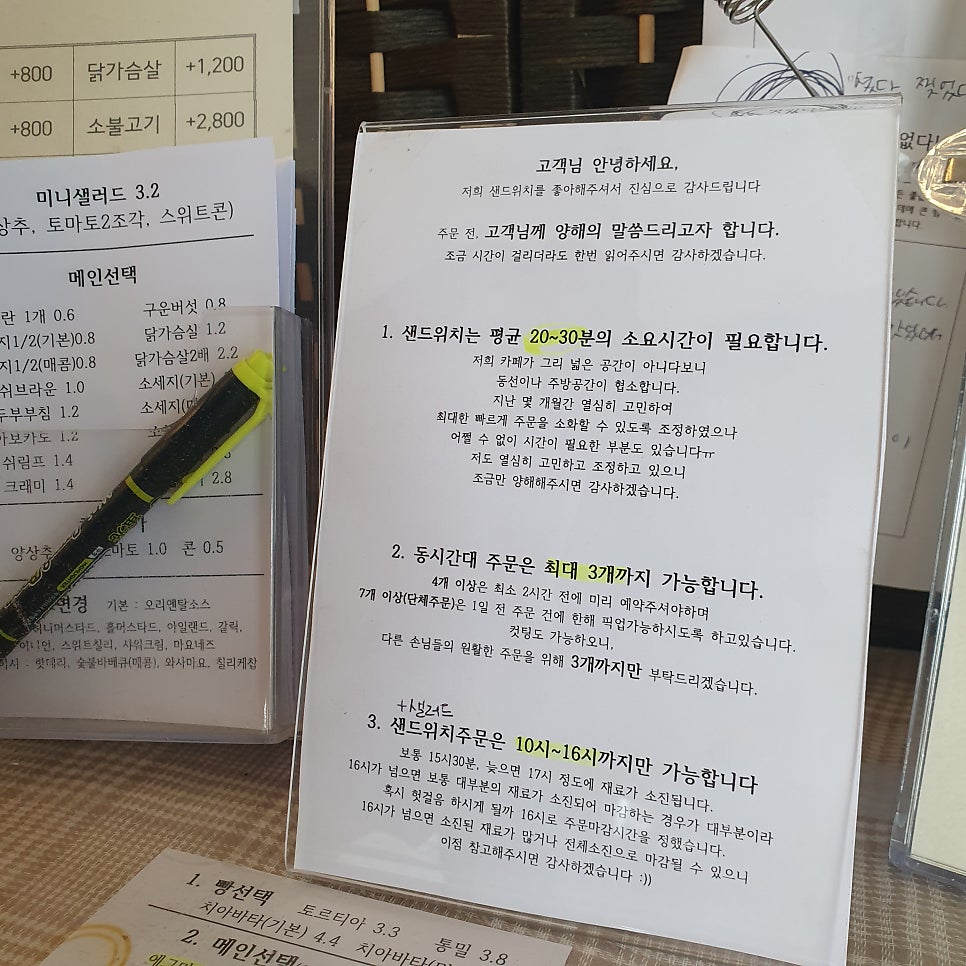 +800 닭가슴살 +1,200
+800 소불고기 +2,800
미니샐러드 3.2
상추, 토마토2조각, 스위트콘)
메인선택
란 1개 0.6 구운버섯 0.8
지1/2(기본)0.8 닭가슴실 1.2
지1/2(매콤)0.8 닭가슴살2배 2.2
쉬브라운 1.0 소세지(기본)
두부부침 1.2 소세지(
아보카도 1.2
쉬림프 1.4
크래미 1.4 2.8
양상추 토마토 1.0 콘 0.5
변경 기본 : 오리엔탈소스
허니머스타드, 홀머스타드, 아일랜드, 갈릭,
어니언, 스위트칠리, 샤워크림, 마요네즈
핫데리, 숯불바베큐(매콤), 와사미요, 칠리케찹
고객님 안녕하세요,
저희 샌드위치를 좋아해주셔서 진심으로 감사드립니다
주문 전, 고객님께 양해의 말씀드리고자 합니다.
조금 시간이 걸리더라도 한번 읽어주시면 감사하겠습니다.
1. 샌드위치는 평균 20~30분의 소요시간이 필요합니다.
저희 카페가 그리 넓은 공간이 아니다보니
동선이나 주방공간이 협소합니다.
지난 몇 개월간 열심히 고민하여
최대한 빠르게 주문을 소화할 수 있도록 조정하였으나
어쩔 수 없이 시간이 필요한 부분도 있습니다ㅠ
저도 열심히 고민하고 조정하고 있으니
조금만 양해해주시면 감사하겠습니다.
2. 동시간대 주문은 최대 3개까지 가능합니다.
4개 이상은 최소 2시간 전에 미리 예약주셔야하며
7개 이상(단체주문)은 1일 전 주문 건에 한해 픽업가능하시도록 하고있습니다.
컷팅도 가능하오니,
다른 손님들의 원활한 주문을 위해 3개까지만 부탁드리겠습니다.
+샐러드
3. 샌드위치주문은 10시~16시까지만 가능합니다
보통 15시30분, 늦으면 17시 정도에 재료가 소진됩니다.
16시가 넘으면 보통 대부분의 재료가 소진되어 마감하는 경우가 대부분이라
혹시 헛걸음 하시게 될까 16시로 주문마감시간을 정했습니다.
16시가 넘으면 소진된 재료가 많거나 전체소진으로 마감될 수 있으니
이점 참고해주시면 감사하겠습니다 :))
1. 빵선택 토르티아 3.3 통밀 3.8
치아바타(기본) 4.4 치아바타(
2. 메인선택